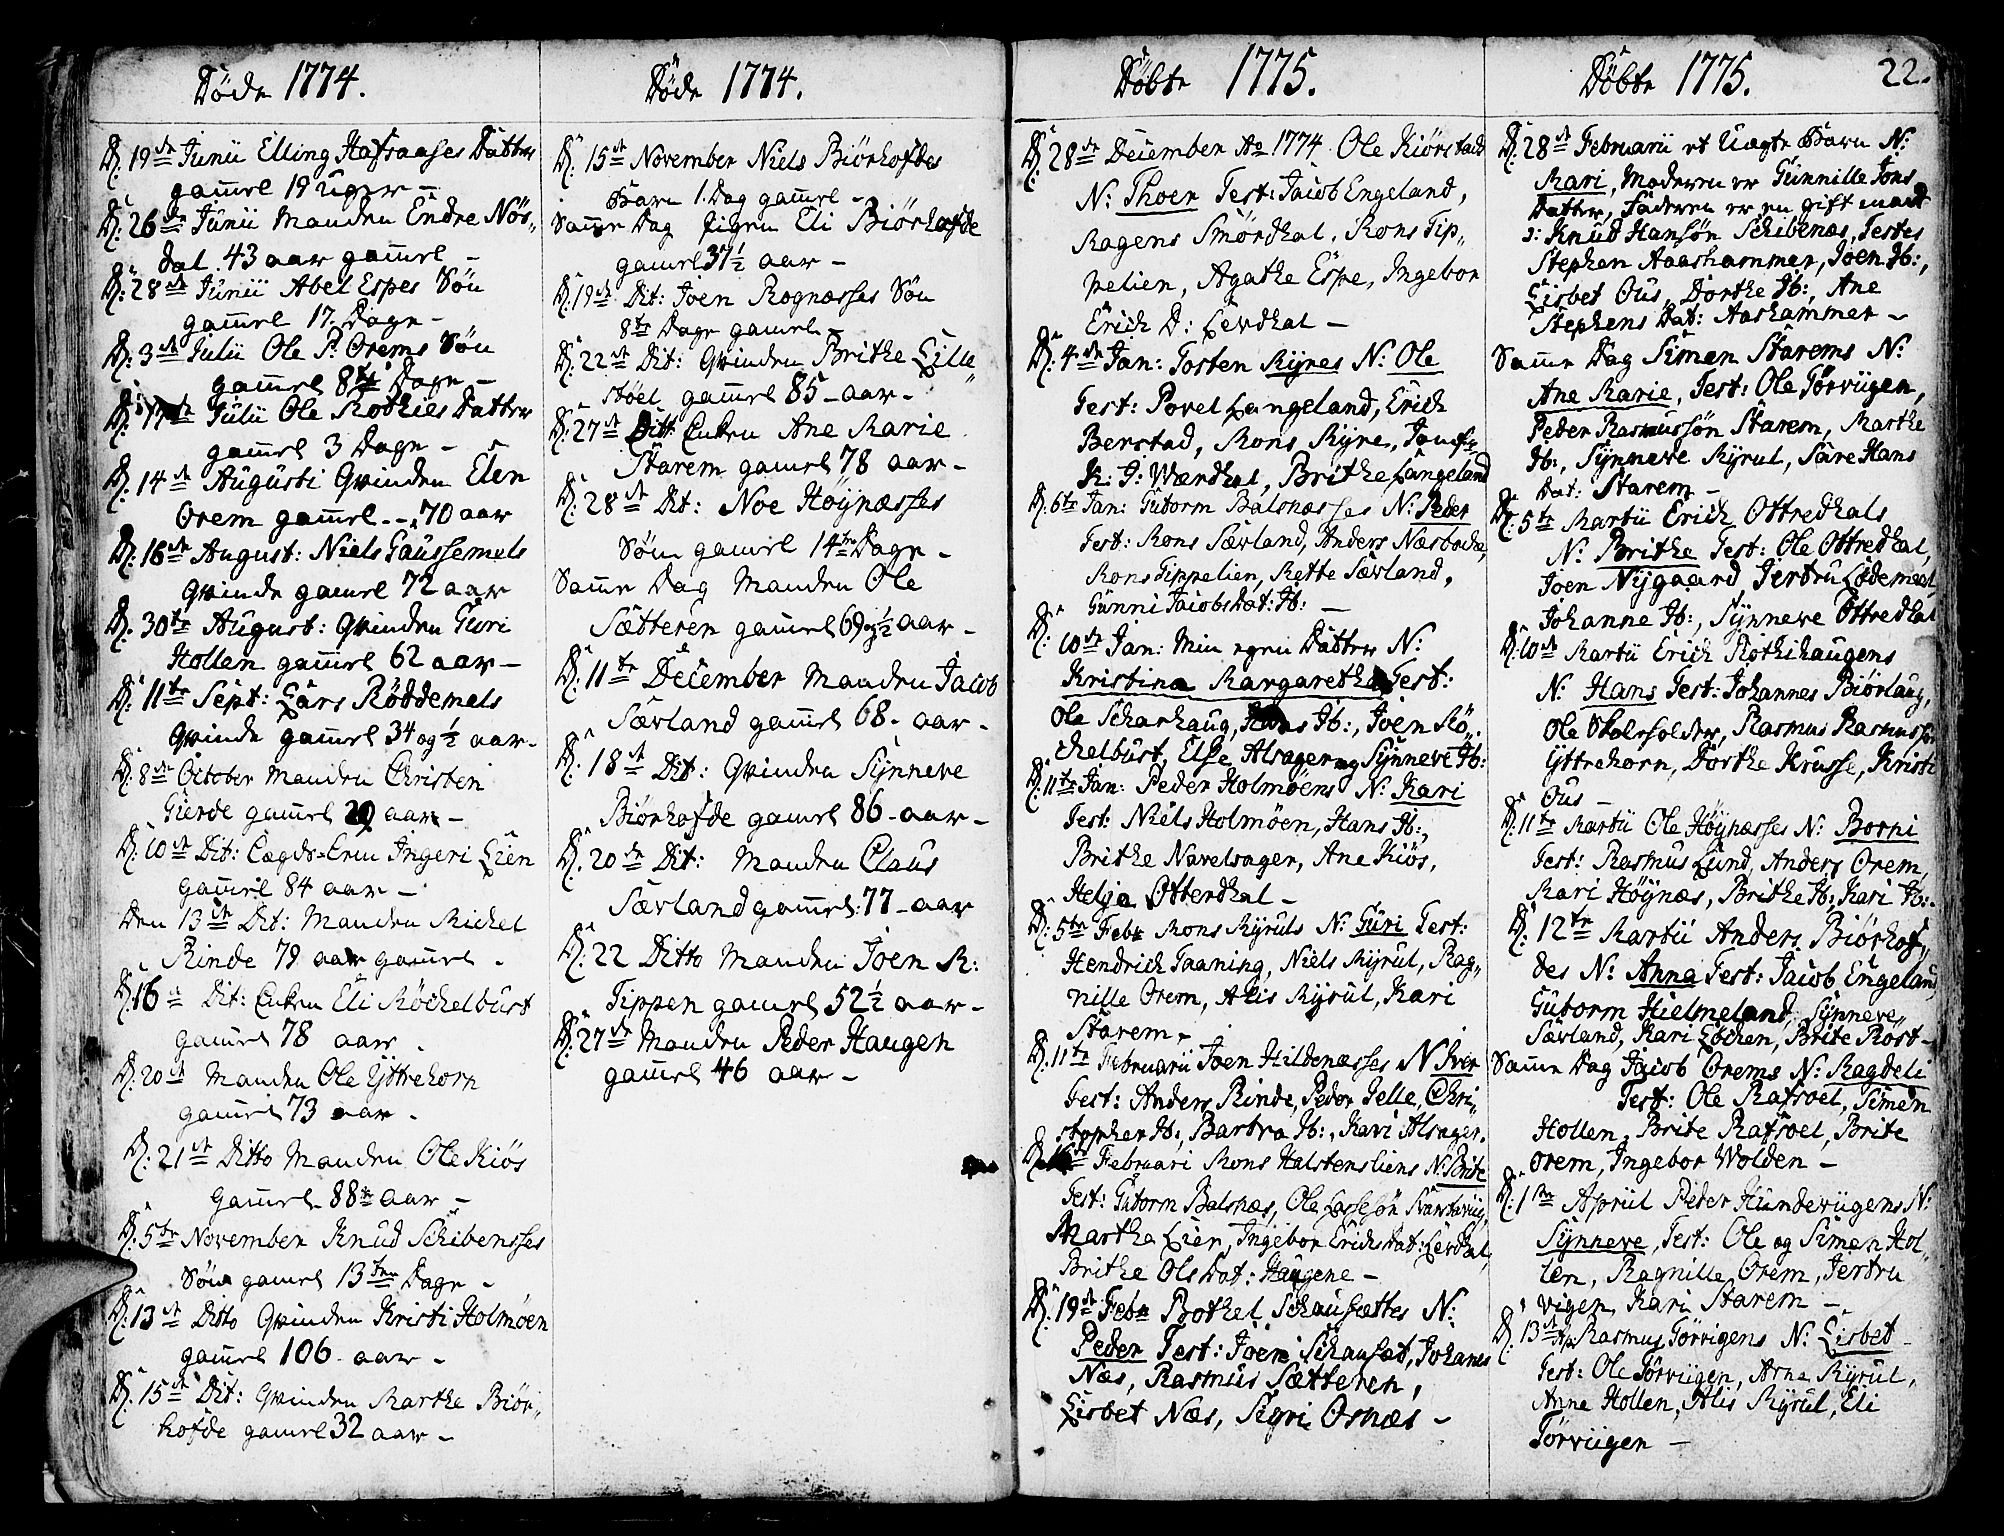 Döde 1774.
D: 19de Junii Elling Hafsaases Datter
gamel 19 Uger –
D: 26de Junii Manden Endre Nös„
dal 43 aar gamel –
D: 28de Junii Abel Espes Sön
gamel 17 Dage –
D: 3de Julii Ole P: Orems Sön
gamel 8te Dage –
Julii Ole Rotkies Datter
gamel 3 Dage –
D: 14de Augusti Qvinden Elen
Orem gamel – 70 aar
D: 16de August: Niels Gaussemels
Qvinde gamel 72 aar
D: 30te August: Qvinden Guri
Hollen gamel 62 aar –
D: 11te Sept: Lars Röddemels
Qvinde gamel 34 og ½ aar –
D: 8de October Manden Christen
Gierde gamel 29 aar –
D: 10de Dit: Lægds=Lem Ingeri Lien
gamel 84 aar –
Den 13de Dit: Manden Mickel
Rinde 79 aar gamel –
D: 16de Dit: Enken Eli Röchelbust
gamel 78 aar –
D: 20de Manden Ole Yttrehorn
gamel 73 aar –
D: 21de Ditto Manden Ole Kiös
gamel 88te aar –
D: 5te November Knud Schibensses
Sön gamel 13ten Dage –
D: 13de Ditto Qvinden Kristi Holmöen
gamel 106 aar –
D: 15de Dit: Qvinden Marthe Biör„
hofde gamel 32 aar –
Döde 1774.
D: 15de November Niels Biörhofdes
Barn 1 Dag gamel –
Same Dag Pigen Eli Biörhofde
gamel 37½ aar –
D: 19de Dit: Joen Rognæsses Sön
8te Dage gamel
D: 22de Dit: Qvinden Brithe Lille„
stöel gamel 85 – aar –
D: 27de Ditt: Enken Ane Marie
Starem gamel 78 aar –
D: 28de Dit: Noe Höynæsses
Sön gamel 14ten Dage –
Same Dag Manden Ole
Sætteren gamel 69 og ½ aar –
D: 11te December Manden Jacob
Særland gamel 68 – aar –
D: 18de Dit: Qvinden Synneve
Biörhofde gamel 86 – aar –
D: 20de Dit: Manden Claus
Særland gamel: 77 – aar
D: 22 Ditto Manden Joen R:
Tippen gamel 52½ aar –
D: 27de Manden Peder Haugen
gamel 46 aar –
Döbte 1775.
D: 28de December Ao 1774 Ole Kiörstad
N: Thoer Test: Jacob Engeland,
Magens Smördhal, Mons Tip„
pelien, Agathe Espe, Ingebor
Erich D: Lerdhal –
D: 4de Jan: Tosten Myres N: Ole
Test: Povel Langeland, Erich
Berstad, Mons Myre,
K: J: Værdhal, Brithe Langeland
D: 6te Jan: Gutorm Balsnæsses N: Peder
Test: Mons Særland, Anders Næsbache,
Mons Tippelien, Mette Særland,
Gunni Jacobs Dat: Ib: –
D: 10de Jan: Min egen Datter N:
Kristina Margaretha Test:
Ole Scharhaug, Hans Ib:, Joen Rö„
chelbust, Else Alsager og Synneve Ib:
D: 11te Jan: Peder Holmöens N: Kari
Test: Niels Holmöen, Hans Ib:,
Brithe Navelsager, Ane Kiös,
Helga Otterdhal –
D: 5te Febr Mons Myruls N: Guri Test:
Hendrich Taaning, Niels Myrul, Rag„
nille Orem, Alis Myrul, Kari
Starem –
D: 11te Februarii Joen Hildenæsses N Iver
Test: Anders Rinde, Peder Jelle, Chri„
stopher Ib:, Bartra Ib:, Kari Alsager.
Februari Mons Halstensliens N: Brite
Test: Gutorm Balsnæs, Ole Lassesön Svartevig,
Martha Lien, Ingebor Erichs Dat: Lerdhal,
Brithe Ols Dat: Haugene –
D: 19de Febr Bothel Schausættes N:
Peder Test: Joen Schausæt, Johanes
Næs, Rasmus Sætteren,
Lisbet Næs, Sigri Osnæs –
Döbte 1775.
22.
D: 28de Februarii et Uægte Barn N:
Mari, Moderen er Gunnille Jons
Datter, Faderen er en gift mand
s: Knud Hansön Schibenæs, Testes
Stephen Aashammer, Joen Ib:,
Lisbet Ous, Dorthe Ib:, Ane
Stephens Dat: Aashammer –
Same Dag Simen Starems N:
Ane Marie, Test: Ole Törviigen,
Peder Rasmussön Starem, Marthe
Ib:, Synneve Myrul, Sare Hans
Dat: Starem –
D: 5te Martii Erich Ottredhals
N: Brithe Test: Ole Ottredhal,
Joen Nygaard Jertru Lödemel,
Johanne Ib:, Synneve Ottredhal
D: 10de Martii Erich Rothihaugens
N: Hans Test: Johannes Biörlaug,
Ole Skolefolder, Rasmus Rasmussön
Yttrehorn, Dorthe Krusse, Kristi
Ous –
D: 11te Martii Ole Höynæsses N: Borni
Test: Rasmus Lund, Anders Orem,
Mari Höynæs, Brithe Ib: Kari Ib:
D: 12te Martii Anders Biörhof„
des N: Anna Test: Jacob Engeland,
Gutorm Hielmeland, Synneve
Særland, Kari Löchen, Brite Röst –
Same Dag Jacob Orems N: Magdeli
Test: Ole Rafsoel, Simen
Hollen, Brite Rafsoel, Brite
Orem, Ingebor Wolden –
D: 1ste Apriil Peder Hunderiigens N:
Synneve, Test: Ole og Simen Hol„
len, Ragnille Orem, Jertru
Vigen, Kari Starem –
D: 13de Ap Rasmus Törvigens N: Lisbet
Test: Ole Törviigen, Arne Myrul,
Anne Hollen, Alis Myrul, Eli
Törviigen –